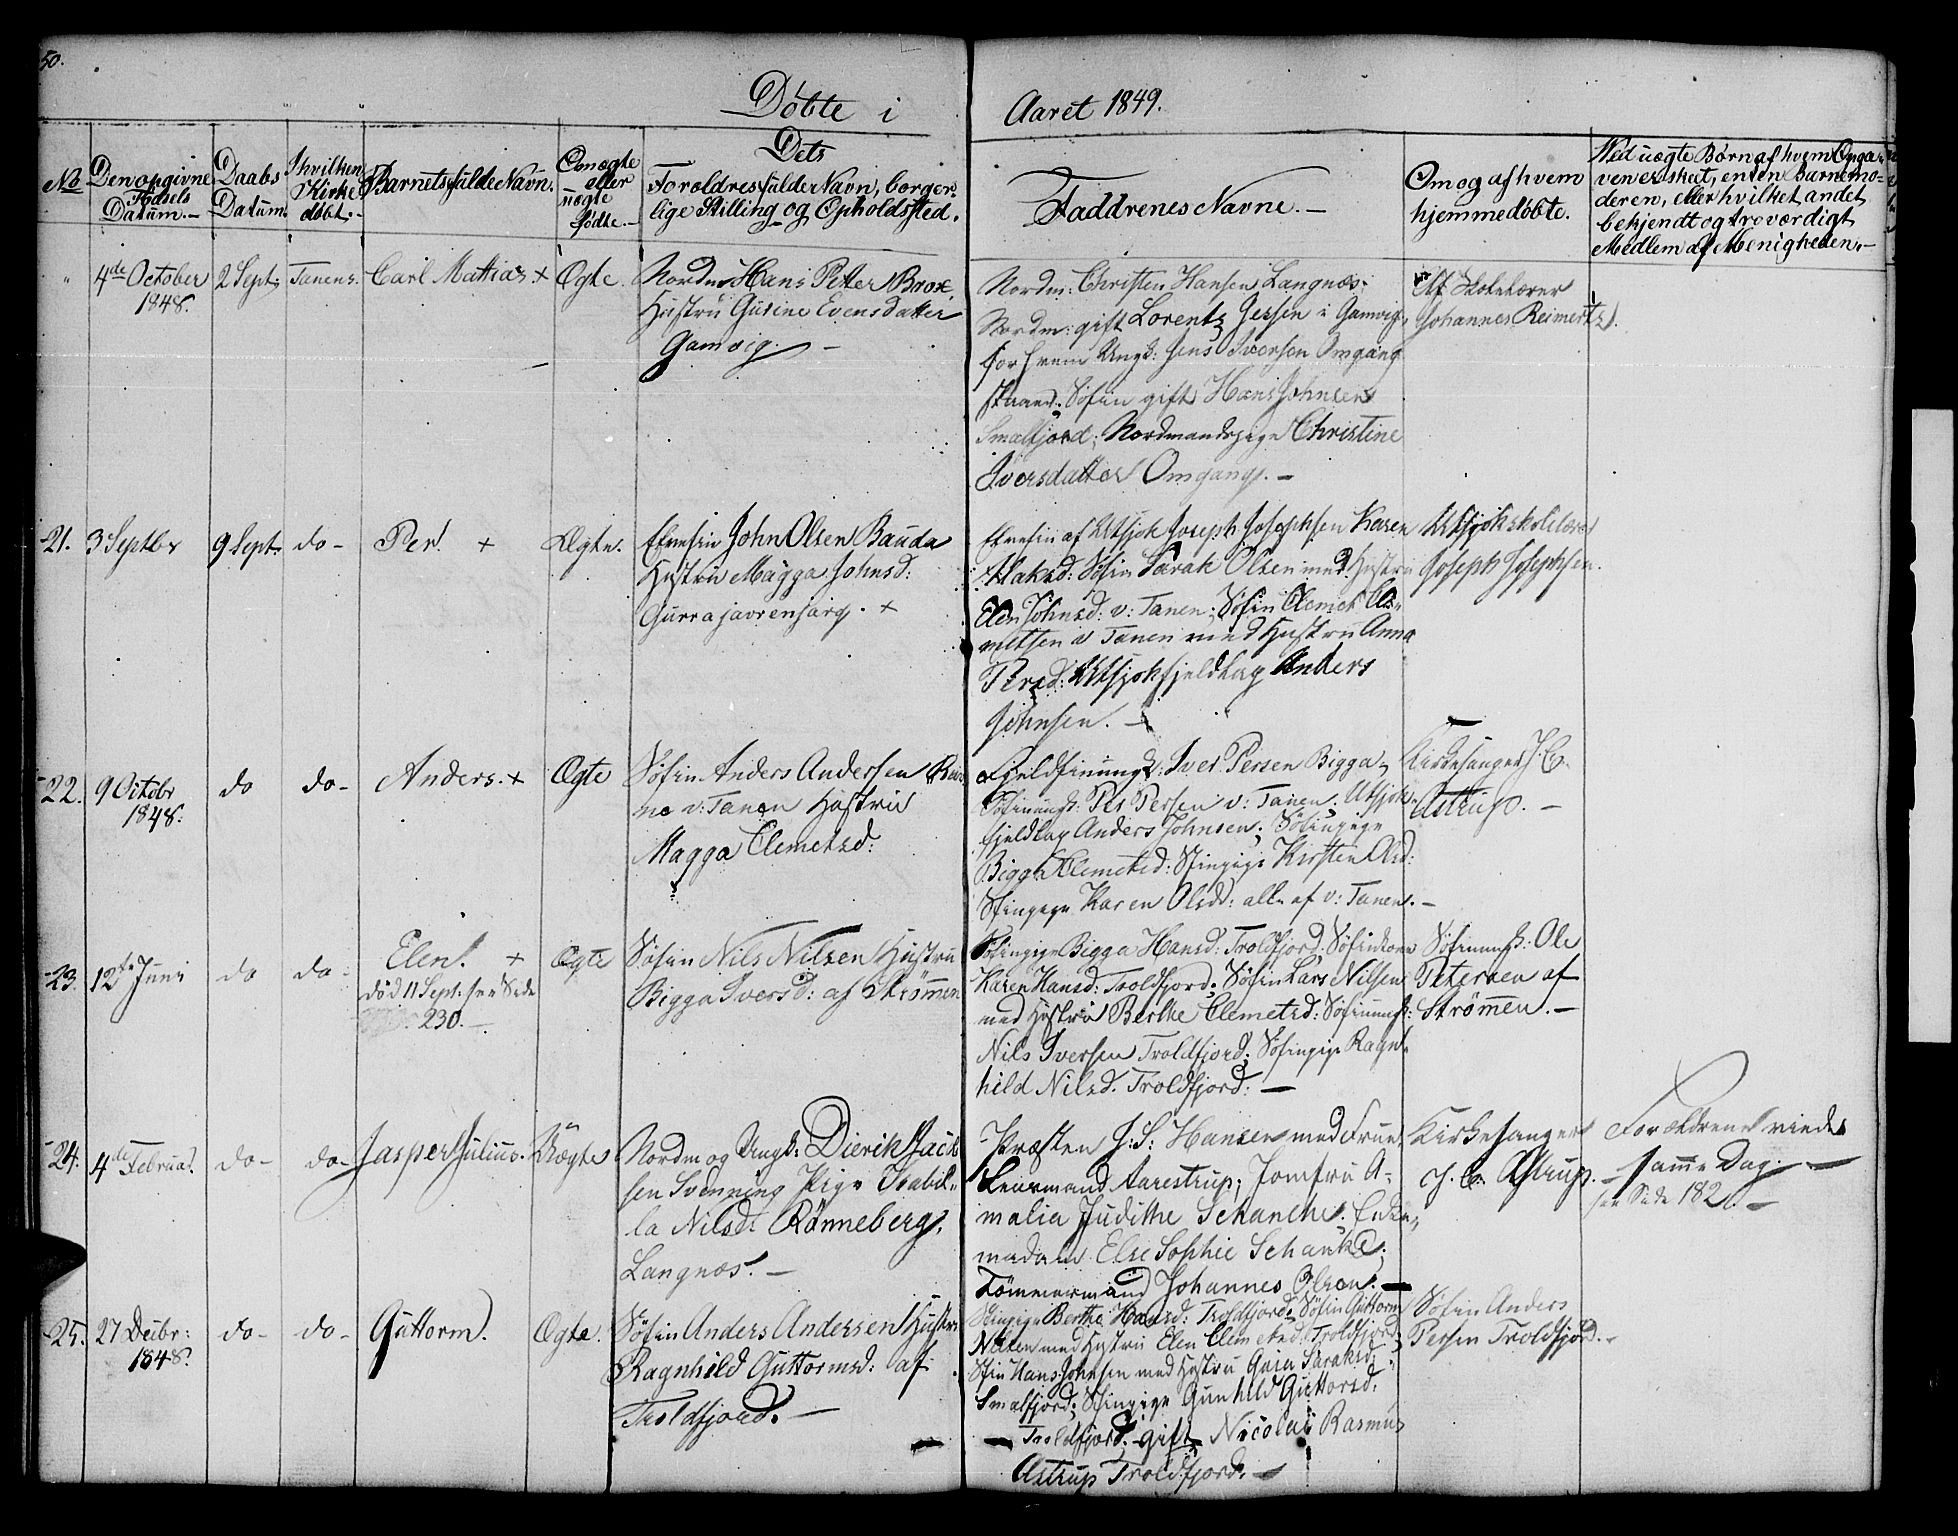 50.
Döbte i Aaret 1849.
No
Den opgivne Fødsels Datum. —
Daabs Datum.
I hvilken Kirke døbt. —
Barnets fulde Navn.
Om ægte eller uægte Fødte. —
Dets Forældres fulde Navn, borgerlige Stilling og Opholdssted.
Faddrenes Navne. —
Om og af hvem hjemmedøbte.
Ved uægte Børn af hvem Opga-
ven er skeet, enten Barnemo-
deren, eller hvilket andet
bekjendt og troværdigt
Medlem af Menigheden. —
" 4de October 1848. 2 Sept. Tanens. Carl Mattias × Ægte.
Nordm Hans Petter Broxe,
Hustru Gurine Evensdatter
Gamvig. —
Nordm: Christen Hansen Langnæs;
Nordm: gift Lorentz Jessen i Gamvig,
for hvem Ungk: Jens Iversen Omgang
stand; Søfin gift Hans Johnsen
Smalfjord; Nordmandspige Christine
Iversdatter Omgang. —
Af Skolelærer
Johannes Reimertz.
21. 3 Septbr 9 Sept. do — Per. × Ægte.
John Olsen Bauda
Hustru Magga Johnsd:
Gurrajavrenjarg. ×
af Utsjok Joseph Josephsen Karen
Aslaksd: Søfin Sarak Olsen med Hustru
Elen Johnsd: v: Tanen; Søfin Clemet Cle-
metsen v Tanen med Hustru Anna
Persd: Utsjokfjeldlap Anders
Johnsen. —
Utsjokskolelærer
Joseph Josephsen.
22. 9 Octobr 1848. do do — Anders. × Ægte
Søfin Anders Andersen
v: Tanen Hustru
Magga Clemetsd:
Fjeldfinungk: Iver Persen Bigga,
Søfinungk: Per Persen v: Tanen. Utsjok-
fjeldlap Anders Johnsen; Søfinpige
Bigga Clemetsd: Søfinpige Kirsten Olsd:
Søfinpige Karen Olsd: alle af v: Tanen. —
Kirkesanger J. C.
Astrup. —
23. 12te Juni do do — Elen. × Ægte
død 11 Sept. see Side
230. —
Søfin Nils Nilsen Hustru
Bigga Iversd: af Strömmen
Søfinpige Bigga Hansd: Troldfjord; Søfinkone
Karen Hansd: Troldfjord; Søfin Lars Nilsen
med Hustru Berthe Clemetsd: Søfinungk:
Nils Iversen Troldfjord; Søfinpige Ragn-
hild Nilsd. Troldfjord. —
Søfinungk: Ole
Petersen af
Strömmen. —
24. 4de Februar. do — do — Jasper Julius. Uægte
Nordm og Ungk: Dierik Jacob-
sen Svenning Pige Isabil-
la Nilsd: Rønneberg,
Langnæs. —
Præsten J: S: Hansen med Frue,
Leursmand Aarestrup; Jomfru A-
malia Judithe Schanche; Enke-
madam Else Sophie Schanke;
Tömmermand Johannes Olsen. —
Kirkesanger
J. C. Astrup.
Forældrene viede
samme Dag. —
see Side 182. —
25. 27 Decbr: 1848. do — do — Guttorm. Ægte.
Søfin Anders Andersen Hustru
Ragnhild Guttormsd: af
Troldfjord. —
Søfinpige Berthe Hansd: Troldfjord; Søfin Guttorm
Nilsen med Hustru Elen Clemetsd. Troldfjord;
Søfin Hans Johnsen med Hustru Gaja Saraksd:
Smalfjord; Søfinpige Gunhild Guttorsd.
— Troldfjord; gift Nicolai Rasmus
Astrup Troldfjord. —
Søfin Anders
Persen Troldfjord. —